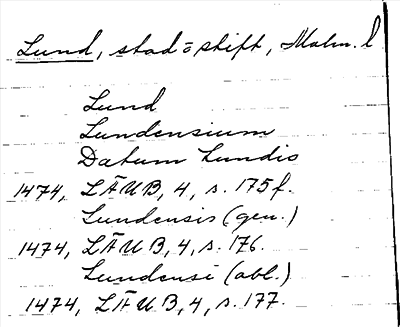 Lund, stad o stift, Malm. l
Lund
Lundensium
Datum Lundis
1474, LÄUB, 4, s. 175f.
Lundensis (gen.)
1474, LÄUB, 4, s. 176.
Lundensi (abl.)
1474, LÄUB, 4, s. 177.